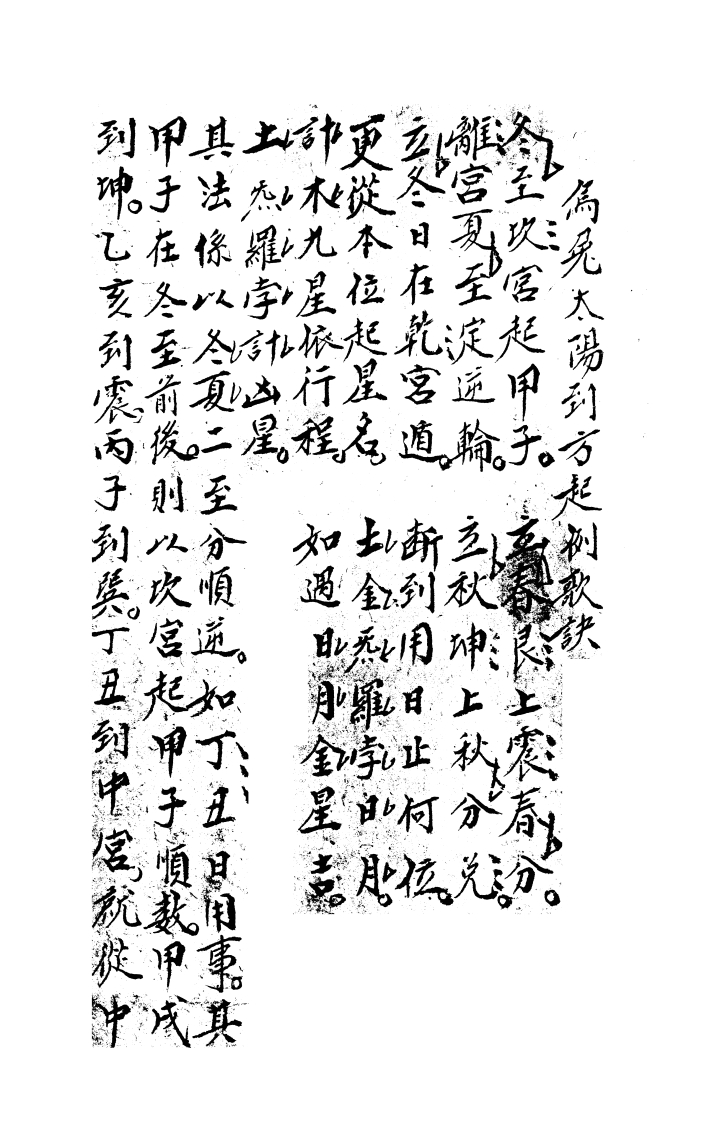 烏兎太陽到方起例歌訣
冬至坎宮起甲子。立春艮上震春分。
離宮夏至淀逆輪。立秋坤上秋分兌。
立冬日在乾宮遁。断到用日止何位。
更從本位起星名。土金炁羅孛日月。
計木九星依行程。如遇日月金星吉。
土炁羅孛計凶星。
其法係以冬夏二至分順逆。如丁丑日用事。其
甲子在冬至前後。則以坎宮起甲子順数。甲戌
到坤。乙亥到震。丙子到巽。丁丑到中宮。就從中